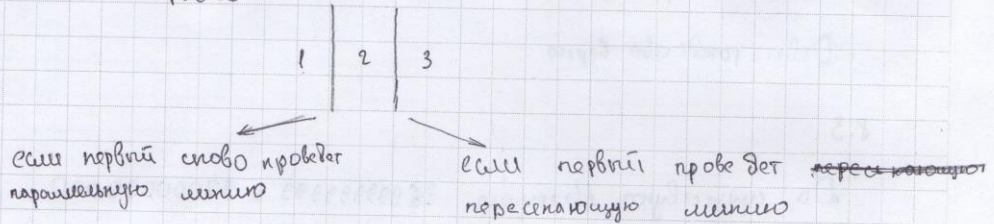 1 2 3
если первый снова проведет
параллельную линию
если первый проведет пересекающую
пересекающую линию